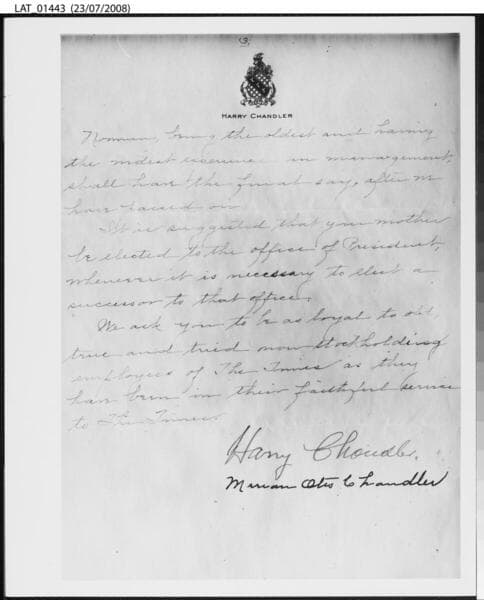 LAT_01443 (23/07/2008)
3.
HARRY CHANDLER
Norman, being the oldest and having
the widest experience in management,
shall have the final say, after we
have passed on.
It is suggested that your mother
be elected to the office of President,
whenever it is necessary to elect a
successor to that office.
We ask you to be as loyal to old,
true and tried non stockholding
employees of The Times as they
have been in their faithful service
to The Times.
Harry Chandler.
Marian Otis Chandler